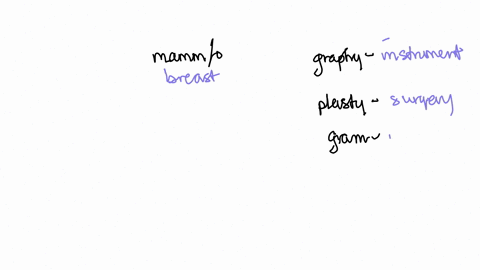 mamm/o
breast
graphy - instrument
plasty - surgery
gram -